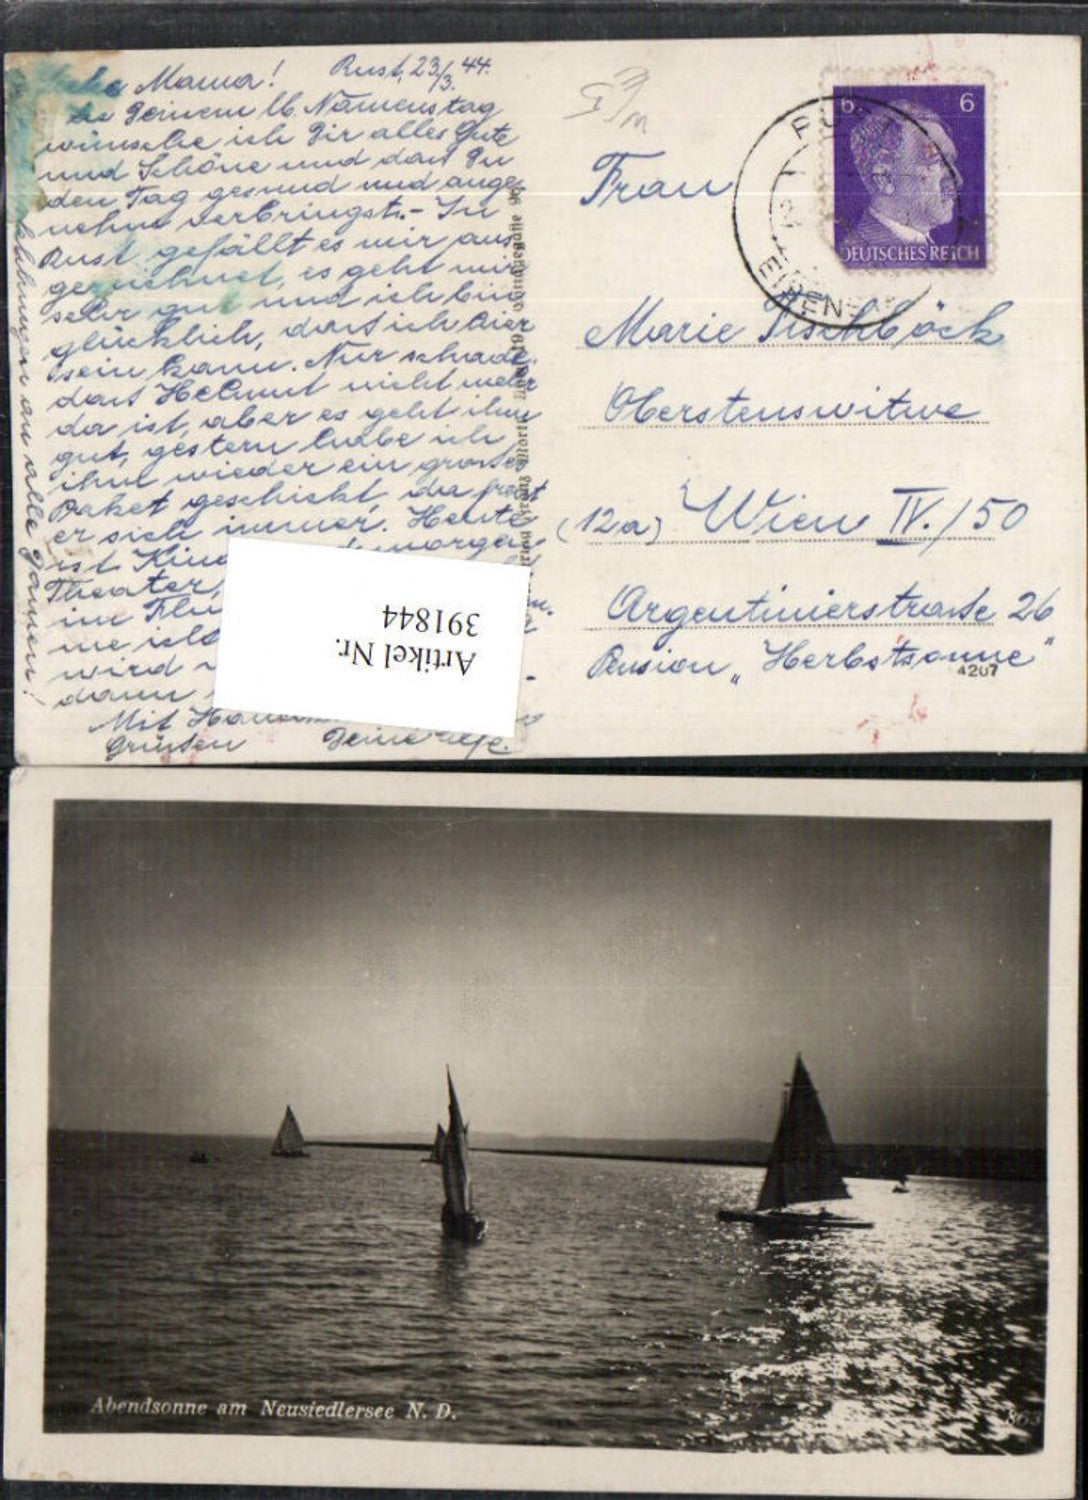 Rust, 23/3. 44.
Mama!
Deinem lb. Namenstag
wünsche ich Dir alles Gute
und Schöne und daß Du
den Tag gesund und ange
nehm verbringst. - In
Rust gefällt es mir aus
gezeichnet, es geht mir
sehr gut und ich bin
glücklich, daß ich hier
sein kann. Nur schade
daß Helmut nicht mehr
da ist, aber es geht ihm
gut, gestern habe ich
ihm wieder ein grosses
Paket geschickt, da freut
er sich immer. Heute
ist morgen
Theater,
im
me ich
wird
dann
Mit
Grüßen Deine
an alle Damen!
Frau
Marie Tischböck
Oberstenswitwe
(12a) Wien IV./50
Argentinierstraße 26
Pension „Herbstsonne"
4207
6 6
DEUTSCHES REICH
Artikel Nr.
391844
Abendsonne am Neusiedlersee N. D.